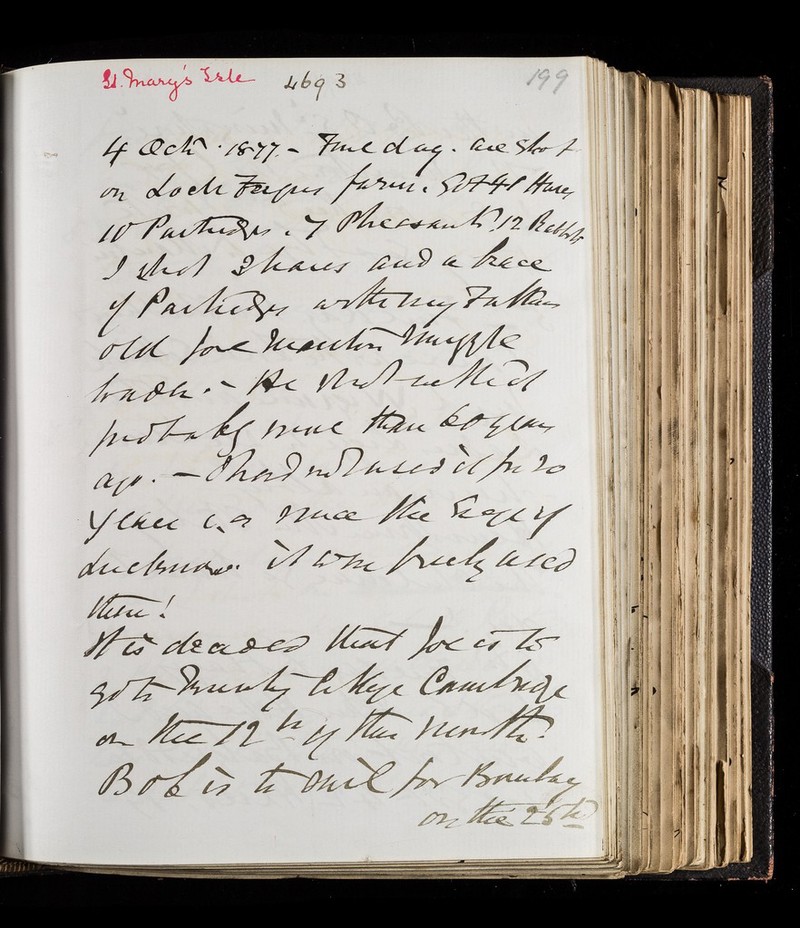 St. Mary's Isle 4693 199
4 Octr. 1877. - Fine day. We shot
on Loch Fergus farm. Got 41 Hares
10 Partridges. 7 Pheasants. 12 Rabbits
I shot 2 hares and a brace
of Partridges with my Fathers
old Joe Manton Muzzle
loader. - He shot with it
probably more than 60 years
ago. - I had not used it for 20
years i.e. since the Siege of
Lucknow. it was freely used
then!
It is decided that Joe is to
go to Trinity College Cambridge
on the 12th of this month.
Bob is to sail for Bombay
on the 25th